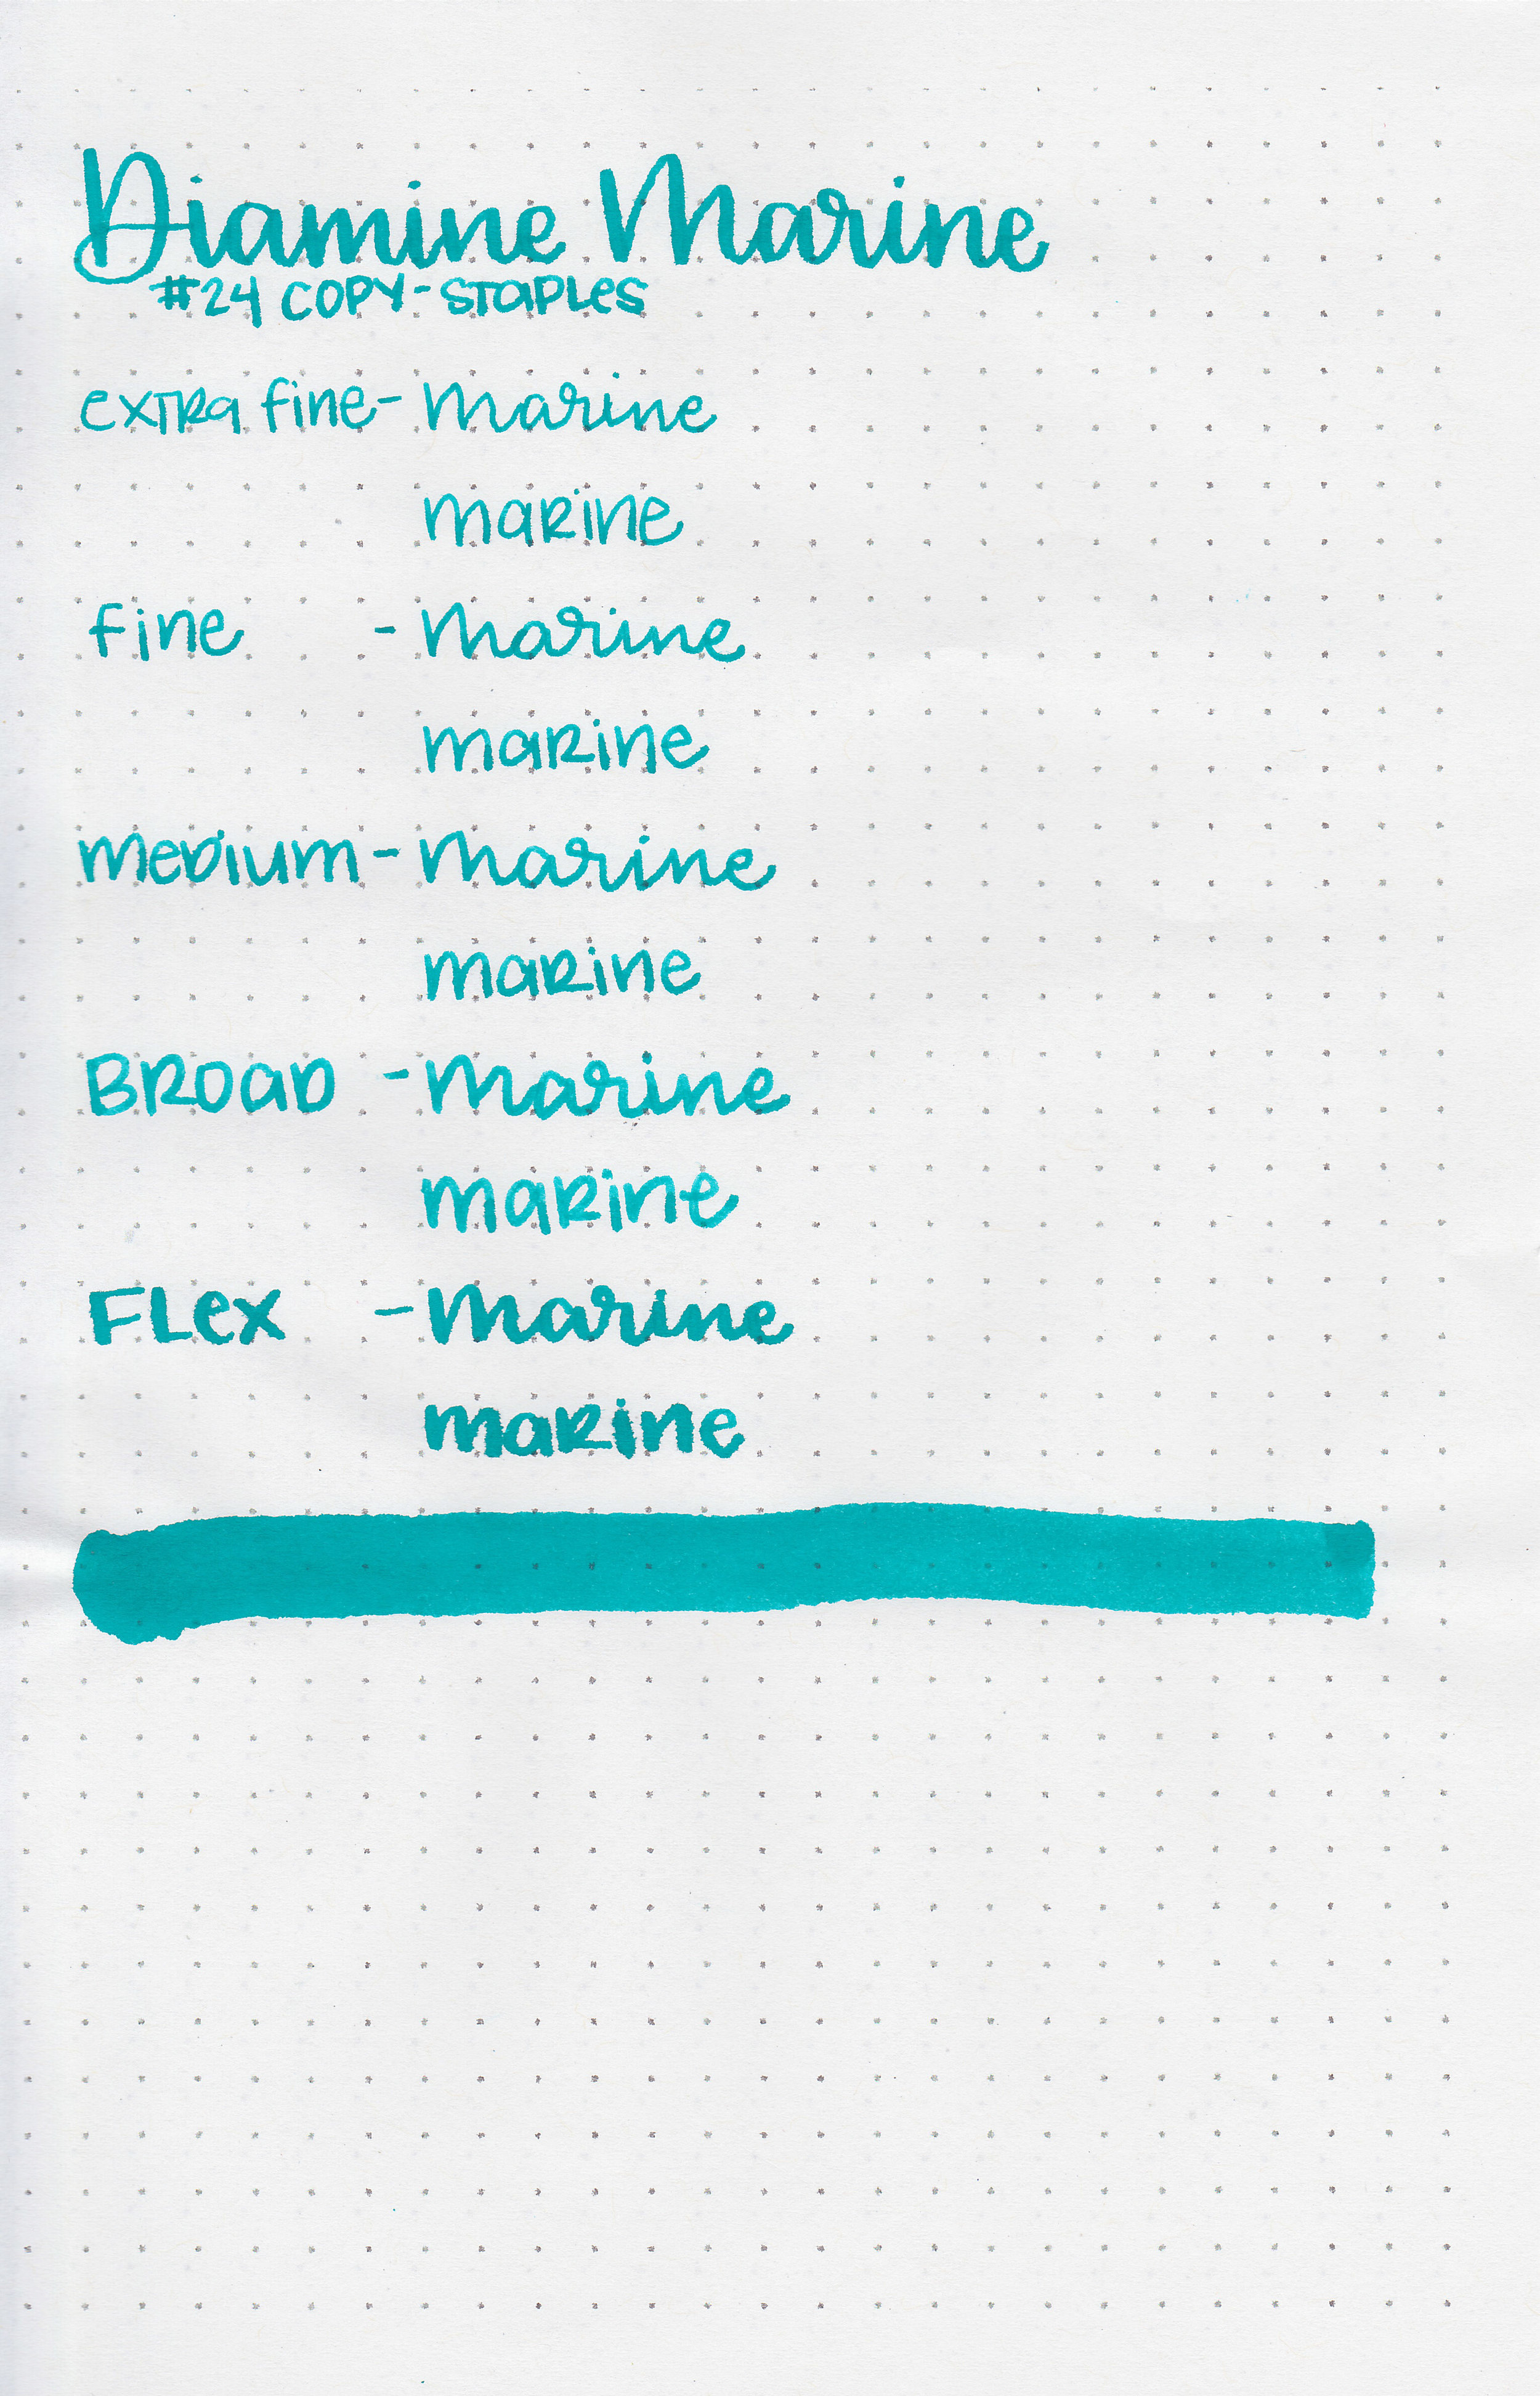 Diamine Marine
#24 COPY-STAPLES
extra fine- marine
marine
fine - marine
marine
medium - marine
marine
BROAD - marine
marine
FLex - marine
marine